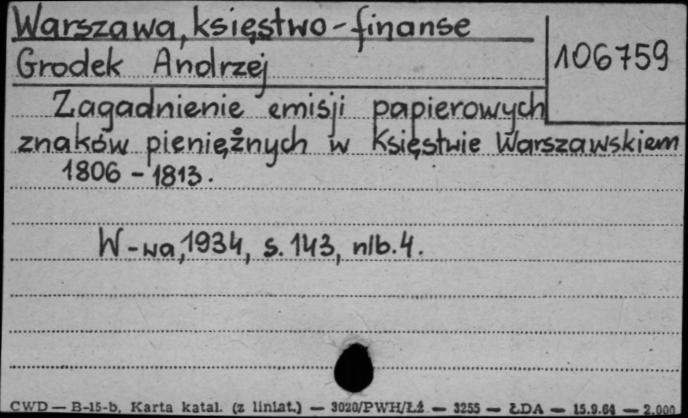 Warszawa, księstwo - finanse
Grodek Andrzej
106759
Zagadnienie emisji papierowych
znaków pieniężnych w Księstwie Warszawskiem
1806 - 1813.
W-wa, 1934, s. 143, nlb. 4.
CWD — B-15-b, Karta katal. (z liniat.) — 3020/PWH/ŁŻ — 3255 — ŁDA — 15.9.64 — 2.000